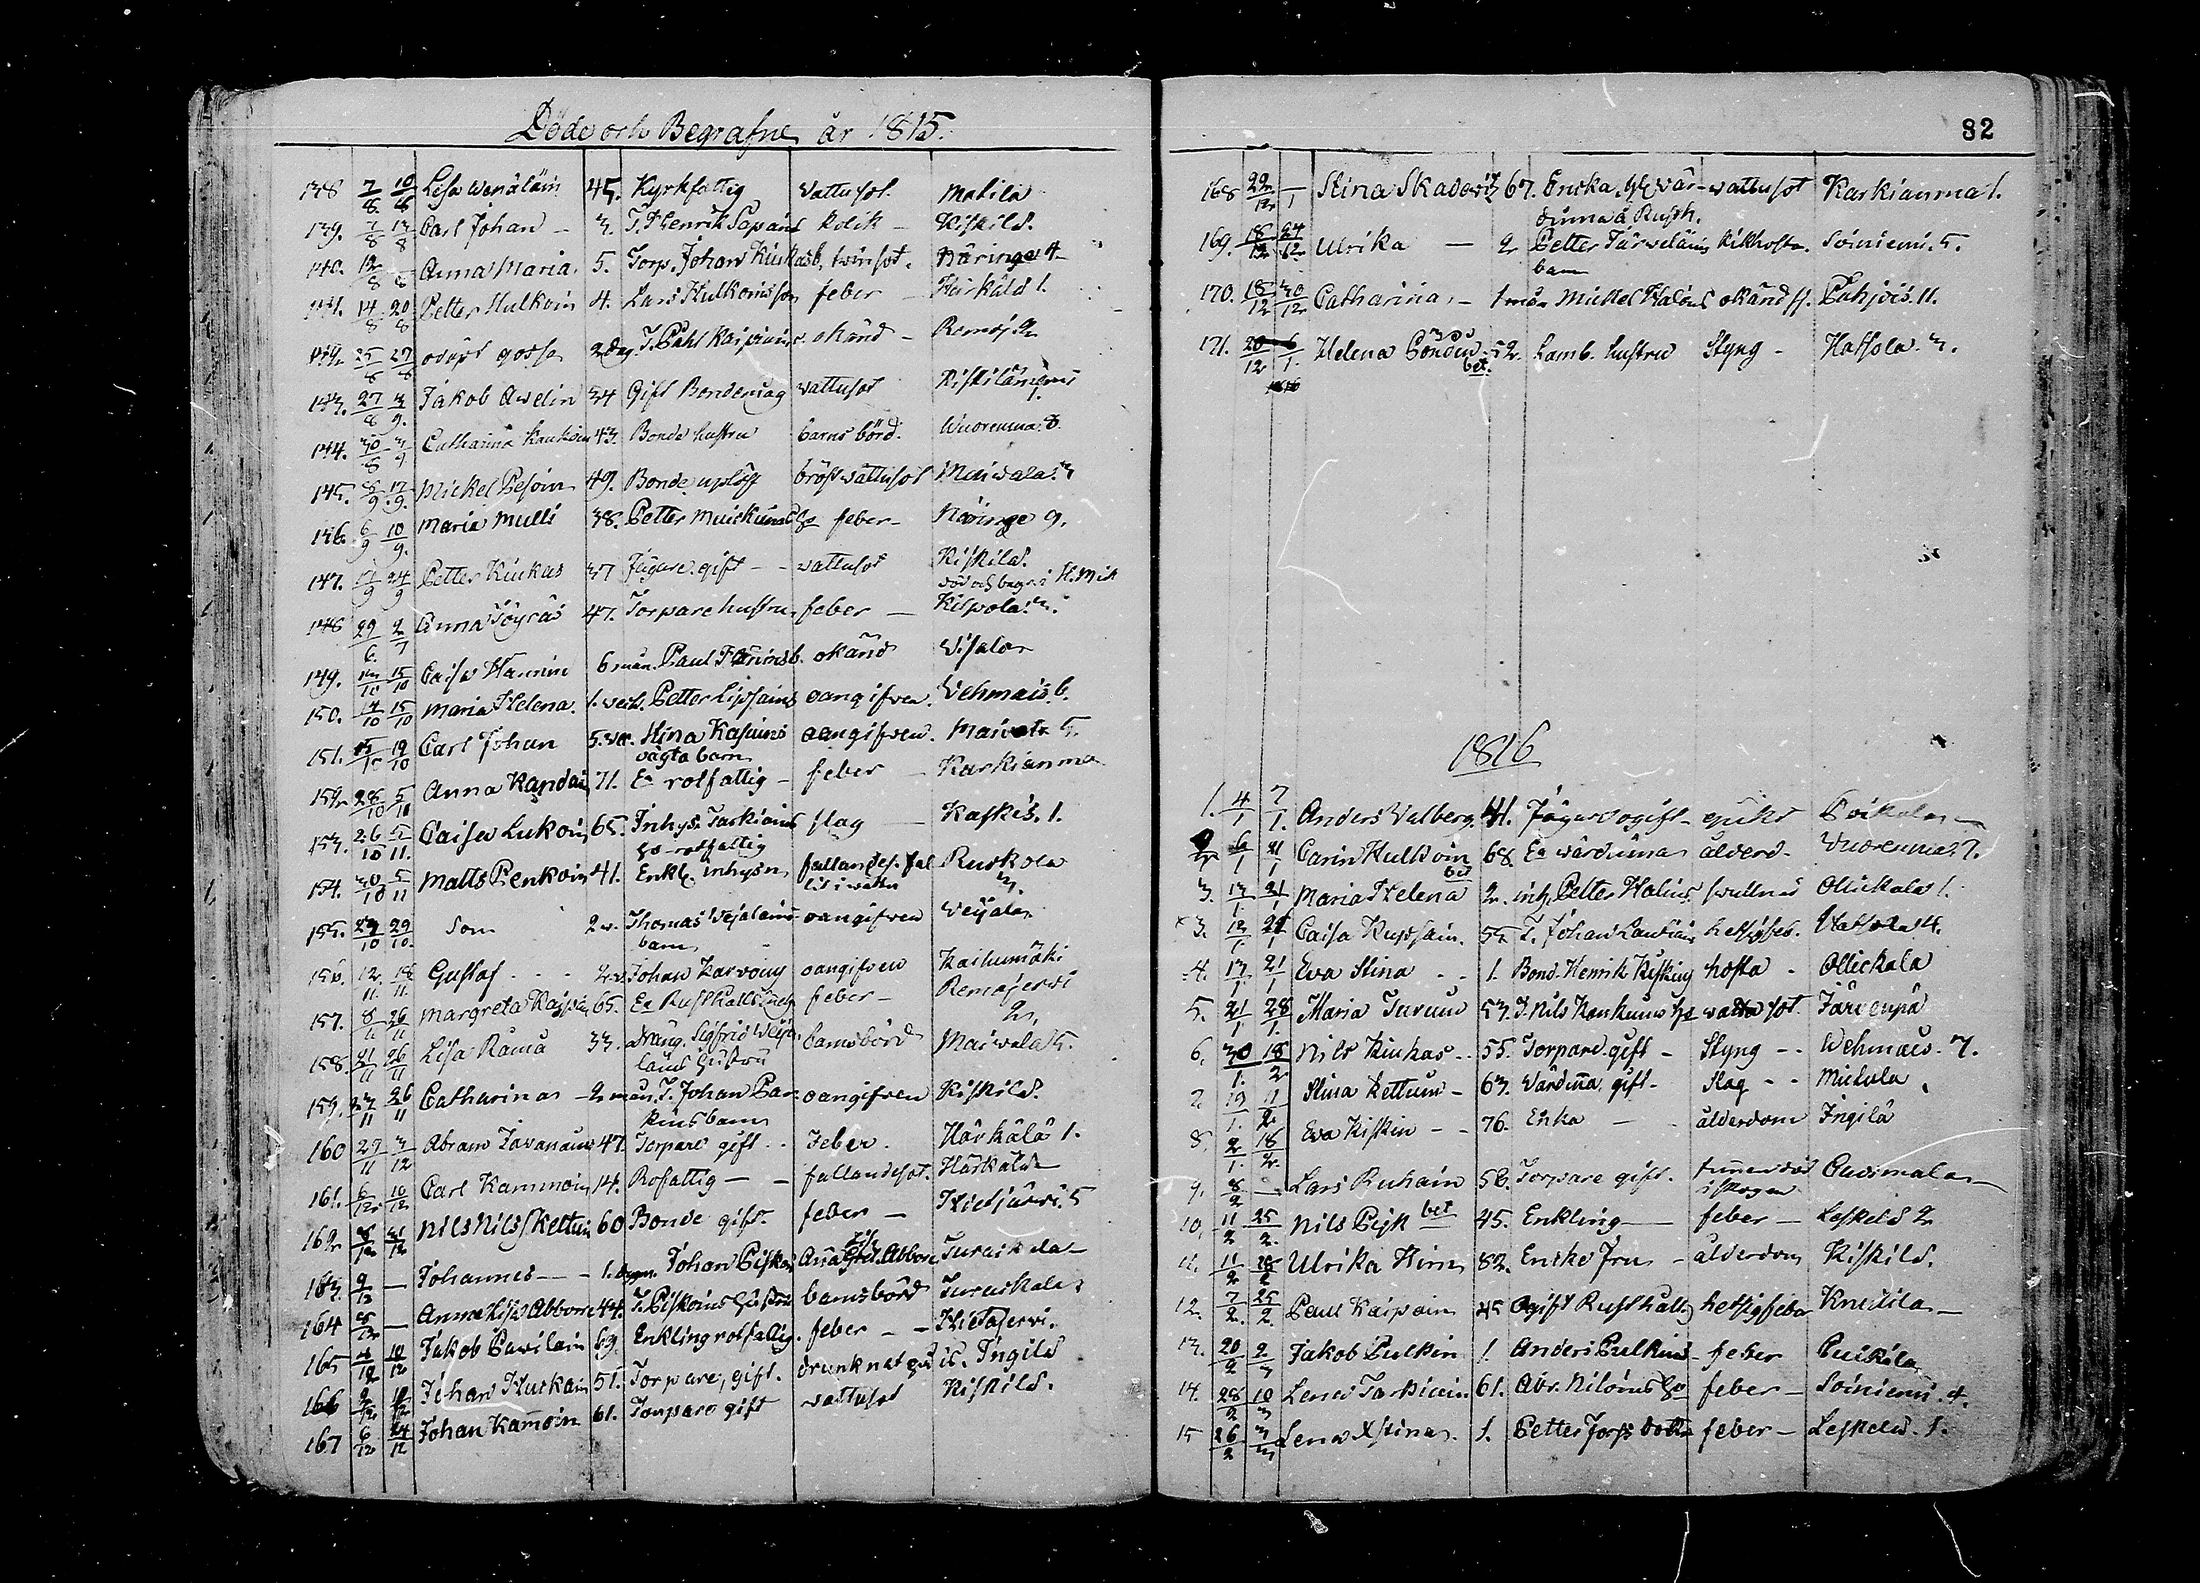 Döde och Begrafne år 1815.
138 7/8 10/8 Lisa Wenäläin 45. Kyrkfattig wattusot Matila
139. 7/8 13/8 Carl Johan - 3. T. Henrik Sapains kolik - Kiskilä.
140. 12/8 Anna Maria. 5. Torp. Johan Kiukasb. twinsot. Näringe 4
141. 14/8 20/8 Petter Hulkoin 4. Lars Hulkoins son feber - Härkälä 1.
142. 25/8 27/8 odöpt gosse 2 dag. T. Påhl Kaipiains okänd - Remoj 2
143. 27/8 3/9. Jakob Awelin 34 Gift Bondemåg wattusot Kiskilämpi
144. 30/8 3/9 Catharina Kaukoin 43. Bonde hustru barnsbörd. Wuorenma. 8.
145. 8/9. 17/9. Mickel Pesoin 49. Bonde bröstwattusot Maiwala. 3
146. 6/9 10/9. Maria Mulli 38. Petter feber - Näringe 9.
147. 17/9 24/9 Petter Kiukas 37 Jägare. gift - - wattusot Kiskilä.
död och begr. i H. Mich
148 29/6. 2/7 Anna Töyräs 47. Torpare hustru feber - Kilpola. 3.
149. 15/10 Caisa Hännin 6 mån. Paul Hännins b. okänd Wisala
150. 14/10 15/10 Maria Helena. 1. weck. Petter Lipsains oangifven. Wehmais 6.
151. 15/10 19/10 Carl Johan 5. wa. Stina Kasuins oangifven. Maivala 5.
oägta barn
152 28/10 5/11 Anna Kandain 71. Ea rotfattig - feber - Karkianma
153. 26/10 5/11. Caisa Lukoin 65. Inhys. Tarkiains slag - Kaskis. 1.
Ho rotfattig
154. 30/10 5/11 Matts Penkoin 41. Enkl. inhysn fallandes. fal Ruokola
lit i watn 3.
155. 29/10 29/10. Son 2 v. Thomas Vejalains oangifven Veijala
barn
156. 12/11. 18/11. Gustaf . . . 2 v. Johan Karvoins oangifven Kaihumäki
157. 8/11 26/11 Margreta Kaipiain 65. Ea Rusthålls feber - Remojerwi
2.
158. 21/11 26/11 Lisa Rämä 33. Dräng. Sigfrid Weija barnsbörd Maiwala 5.
läins hustru
159. 23/11 26/11 Catharina - 2 mån. T. Johan Par oangifven Kiskilä.
kins barn
160 29/11 3/12 Abram Tavanain 47. Torpare gift . . Feber. Härkälä 1.
161. 6/12 10/12 Carl Kammoin 14. Rofattig - - fallandesot. Härkälä
162 21/12 Nils Nilss Kettuin 60 Bonde gift. feber - Hietjärwi. 5
163. 9/12 - Johannes - - 1. dygn. Johan Piskoi Ana Abborr Turaik ala
164 8/12 - Anna Lisa Abborr 44. T. Piskoins hustru barnsbörd Turaikala.
165 4/12 10/12 Jakob Pawilain 69. Enkling rotfattig. feber - - Hietajerwi.
166 2/12 10/12 Johan Huskain 51. Torpare, gift. drunknat is. Ingilä
167 6/12 24/12 Johan Kamoin 61. Torpare gift wattusot Kiskilä.
82
168 22/12 -/1 Stina Skadewitz 67. Encka, wär- wattusot Karkianma 1.
dinna å Rusth.
169. 18/12 24/12 Ulrika - 2 Petter Tärweläins kikhosta. Soiniemi. 5.
barn
170. 18/12 30/12 Catharina - 1 mån Mickel Halains okänd sj. Pahjois. 11.
171. 20/12 6/1. Helena Ponden 52. Lamb. hustru Styng - Hatsola. 3.
1816 bet.
1816
1. 4/1 7/1. Anders Walberg. 41. Jägare ogift - Poikola -
2 6/1 21/1 Carin Hulkoin 68. Ea wärdinna ålderd. Wuorenma. 7.
bet
3. 13/1. 21/1 Maria Helena 2. inh. Petter Halins swullnad Ollickala 1.
3. 12/1. 21/1 Caisa Kupsain. 55. T. Johan Lautiain hetsigfeb. Hatsola 4.
4. 13/1. 21/1 Eva Stina - - 1. Bond. Henrik Kiskins hosta - Ollickala
5. 21/1 28/1. Maria Turuin 53. T. Nils Kankuins Ho watusot. Järvenpä
6. 30/1. 18/2 Nils Kiukas - - 55. Torpare gift - Styng - - Wehmais. 7.
2 19/1. 11/2. Stina Kettuin - 63. Värdinna gift - Slag - - Mickola.
8. 2/1. 18/2. Eva Kiskin - - 76. Enka - - ålderdom Ingilä
9. 8/2 - Lars Ruhain 56. Torpare gift. funnen död Pausmala
i skogen
10. 11/2 25/2. Nils Pisk bet 45. Enkling - feber - Leskelä 2
11. 11/2 18/2 Ulrika Hirn 82. Encke fru - ålderdom Kiskilä.
12. 7/2. 25/2. Paul Kaipain 45 Ogift Rusthålls hetsigfeber Knutila -
13. 20/2 2/3 Jakob Pulkin 1. Anders Pulkins - feber Puikila
14. 28/2 10/3 Lena Tarkiain. 61. Abr. Niloins Ho feber - Soiniemi. 4.
15 26/2 3/3 Lena Xstina. 1. Petter Torss dotter feber - Leskelä. 1.